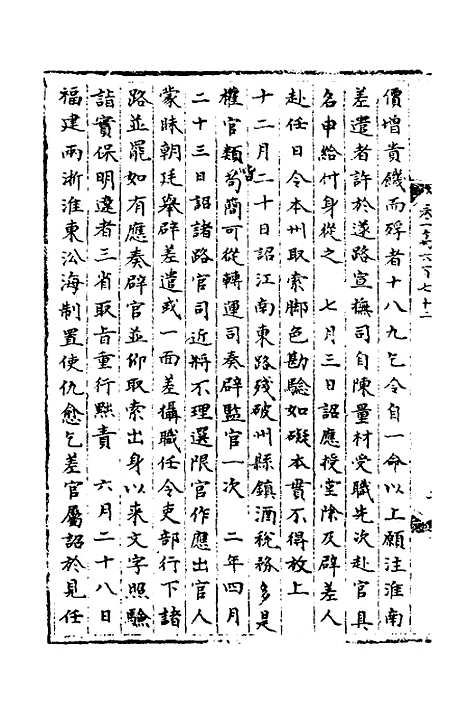 價增貴饑而殍者十八九乞令自一命以上願注淮南
差遣者許於逐路宣撫司自陳量材受職先次赴官具
名申給付身從之　七月三日詔應授堂除及辟差人
赴任日令本州取索脚色勘驗如礙本貫不得放上
十二月二十日詔江南東路殘破州縣鎮酒稅務多是
權官類苟簡可從轉運司奏辟監官一次　二年四月
二十三日詔諸路官司近將不理選限官作應出官人
蒙昧朝廷舉辟差遣或一面差攝職任令吏部行下諸
路並罷如有應奏辟官並仰取索出身以來文字照驗
詣實保明違者三省取旨重行黜責　六月二十八日
福建兩浙淮東沿海制置使仇悆乞差官屬詔於見任